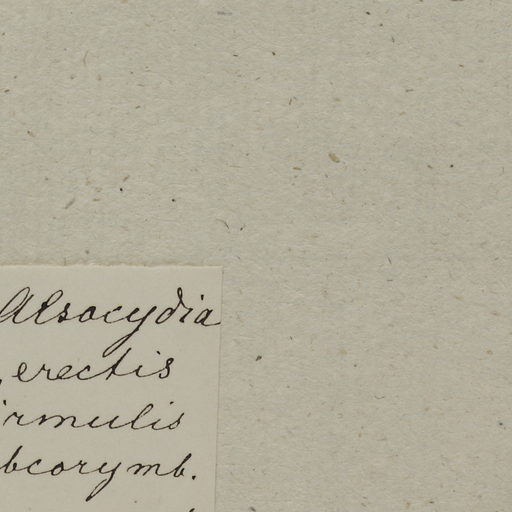 Alsocydia
erectis
irmulis
bcorymb.